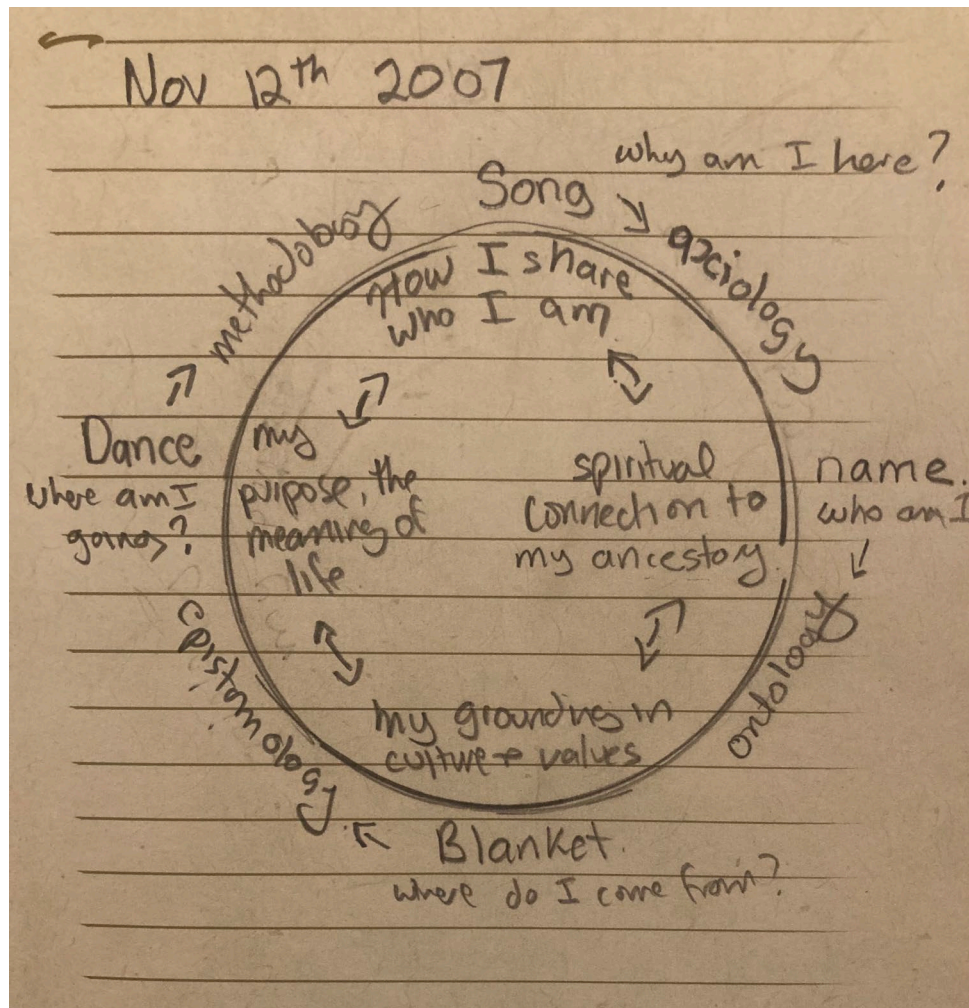 Nov 12th 2007
why am I here?
Song
axciology
methodology
How I share
who I am
Dance
where am I
going?
my
purpose, the
meaning of
life
spiritual
connection to
my ancestory.
name.
who am I
ontology
epistomology
my grounding in
culture + values
Blanket.
where do I come from?